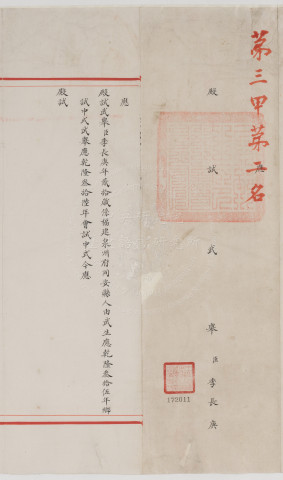 第三甲第五名
殿試武舉臣李長庚
172611
應
殿試武舉臣李長庚年貳拾歲係福建泉州府同安縣人由武生應乾隆叁拾伍年鄉
試中式武舉應乾隆叁拾陸年會試中式今應
殿試